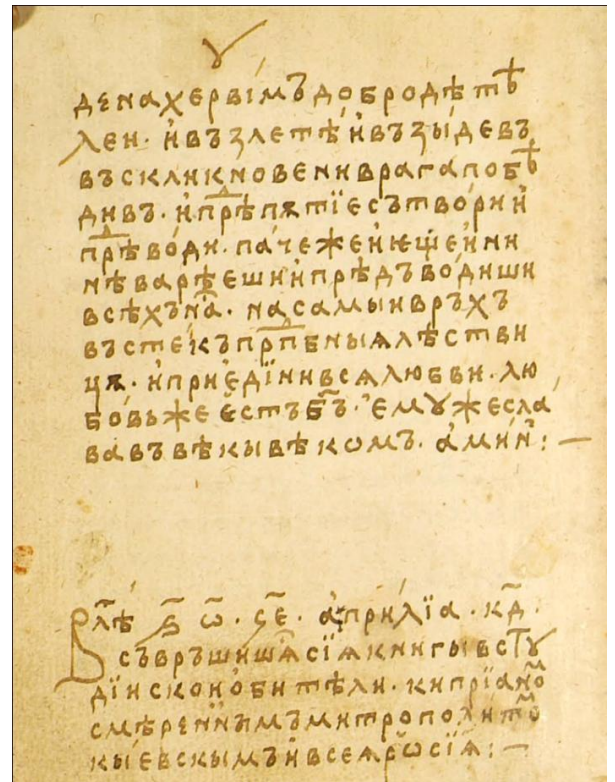 денахерви́мъдо́бродѣтѣ
лен. и҆въꙁлетѣ и҆въꙁы́девъ
въскликновенивраґапобѣ
дивъ. и҆прⷣѣпѫтїесътво́ри и҆
прⷣѣво́ди. па́чежеѝꙗ҆щеѝни
нѣварѣ́ешии҆прѣдъво́диши
всѣхъна҃. насамыивръхъ
въстекъпрⷣпбныѧлѣстви
цѫ. и҆прие҆ди́нивсѧлюбви. лю
бо́вьжее҆стъбг҃ъ. є҆мꙋжесла́
вавъвѣкывѣкѡмъ. а҆ми́н꙽:—
Влѣ҃ ҂ѕ҃ ѡ҃. ч҃е. а҆прилїа. кд҃.
съвръшишѧсїѧкнигывстꙋ
дїискоио҆битѣли. кипрїаноⷨ
смѣреннымъмитрополитоⷨ
кыевскымъи҆всеѧрѡ҃сїѧ:—